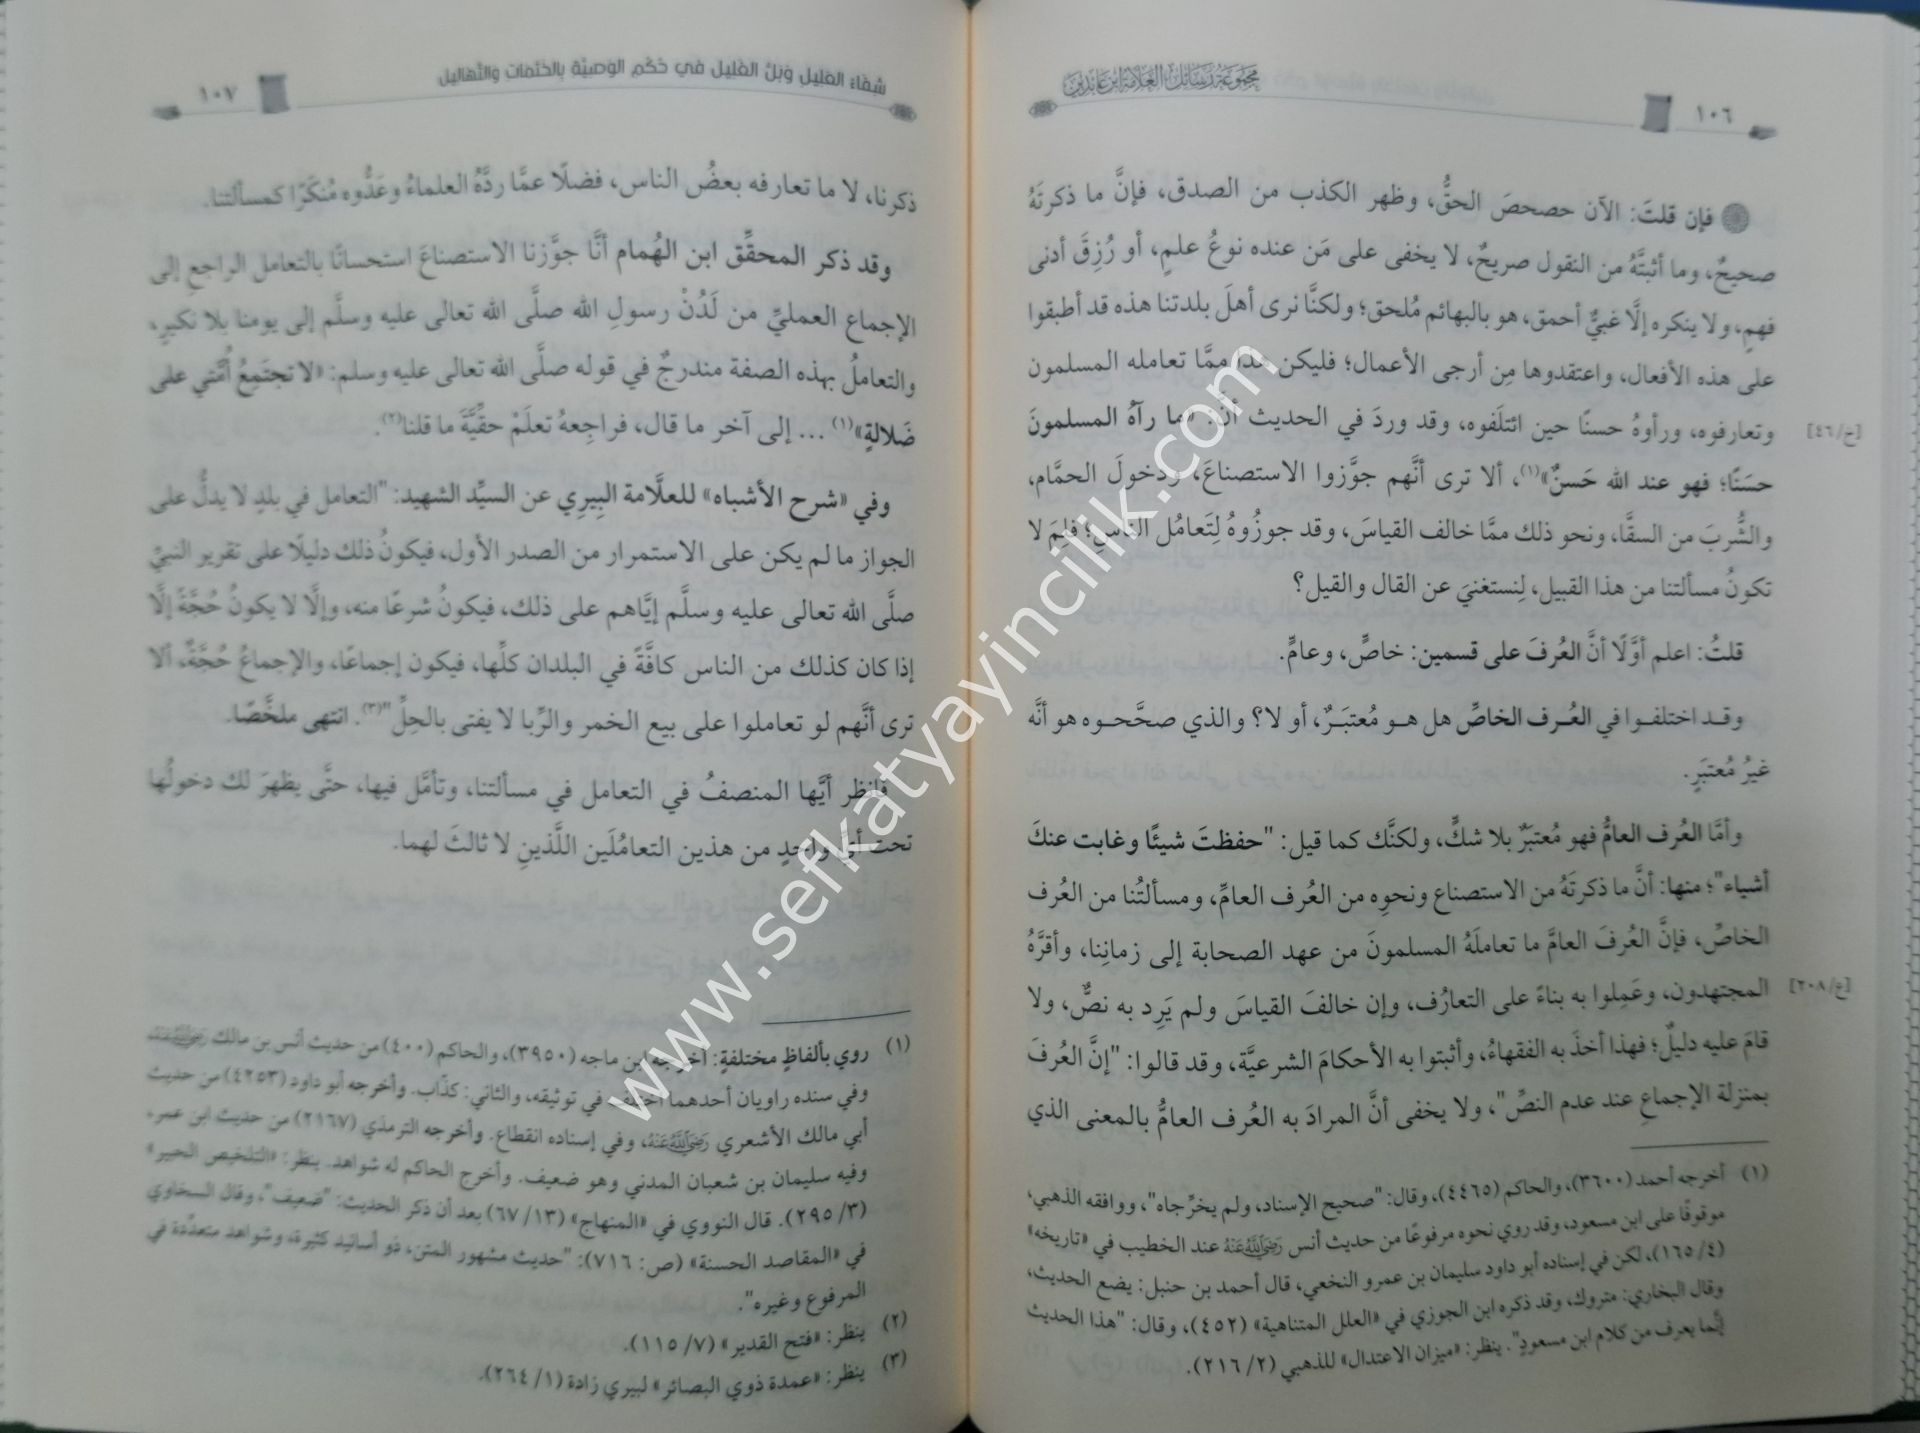 ١٠٦
مجموعة رسائل العلامة ابن عابدين
فإن قلتَ: الآن حصحصَ الحقُّ، وظهر الكذب من الصدق، فإنَّ ما ذكرتَهُ
صحيحٌ، وما أثبتَّهُ من النقول صريحٌ، لا يخفى على مَن عنده نوعُ علمٍ، أو رُزِقَ أدنى
فهمٍ، ولا ينكره إلَّا غبيٌّ أحمق، هو بالبهائم مُلحق؛ ولكنَّا نرى أهلَ بلدتنا هذه قد أطبقوا
على هذه الأفعال، واعتقدوها مِن أرجى الأعمال؛ فليكن هذا ممَّا تعامله المسلمون
وتعارفوه، ورأوهُ حسنًا حين ائتلَفوه، وقد وردَ في الحديث أنَّ: «ما رآهُ المسلمونَ
[خ/٤٦]
حسَنًا؛ فهو عند الله حَسنٌ»(١)، ألا ترى أنَّهم جوَّزوا الاستصناعَ، ودخولَ الحمَّام،
والشُّربَ من السقَّا، ونحو ذلك ممَّا خالف القياسَ، وقد جوزُوهُ لِتَعامُل الناسِ؛ فلِمَ لا
تكونُ مسألتنا من هذا القبيل، لِنستغنيَ عن القال والقيل؟
قلتُ: اعلم أوَّلًا أنَّ العُرفَ على قسمين: خاصٍّ، وعامٍّ.
وقد اختلفوا في العُرف الخاصِّ هل هو مُعتبَرٌ، أو لا؟ والذي صحَّحوه هو أنَّه
غيرُ مُعتبَرٍ.
وأمَّا العُرف العامُّ فهو مُعتبَرٌ بلا شكٍّ، ولكنَّك كما قيل: "حفظتَ شيئًا وغابت عنكَ
أشياء"؛ منها: أنَّ ما ذكرتَهُ من الاستصناع ونحوِه من العُرف العامِّ، ومسألتُنا من العُرف
الخاصِّ، فإنَّ العُرفَ العامَّ ما تعاملَهُ المسلمونَ من عهد الصحابة إلى زمانِنا، وأقرَّهُ
المجتهدون، وعَمِلوا به بناءً على التعارُف، وإن خالفَ القياسَ ولم يَرِد به نصٌّ، ولا
[ع/٢٠٨]
قامَ عليه دليلٌ؛ فهذا أخذَ به الفقهاءُ، وأثبتوا به الأحكامَ الشرعيَّة، وقد قالوا: "إنَّ العُرفَ
بمنزلة الإجماعِ عند عدم النصِّ"، ولا يخفى أنَّ المرادَ به العُرف العامُّ بالمعنى الذي
(١) أخرجه أحمد (٣٦٠٠)، والحاكم (٤٤٦٥)، وقال: "صحيح الإسناد، ولم يخرِّجاه"، ووافقه الذهبي،
موقوفًا على ابن مسعود، وقد روي نحوه مرفوعًا من حديث أنس رَضِيَ اللهُ عَنْهُ عند الخطيب في «تاريخه»
(٤/ ١٦٥)، لكن في إسناده أبو داود سليمان بن عمرو النخعي، قال أحمد بن حنبل: يضع الحديث،
وقال البخاري: متروك، وقد ذكره ابن الجوزي في «العلل المتناهية» (٤٥٢)، وقال: "هذا الحديث
إنَّما يعرف من كلام ابن مسعودٍ". ينظر: «ميزان الاعتدال» للذهبي (٢/ ٢١٦).
شِفَاءُ العَلِيلِ وَبَلُّ الغَلِيل فِي حُكْمِ الوَصِيَّةِ بِالخَتَمَاتِ وَالتَّهَالِيل
١٠٧
ذكرنا، لا ما تعارفه بعضُ الناس، فضلًا عمَّا ردَّهُ العلماءُ وعَدُّوه مُنكَرًا كمسألتنا.
وقد ذكر المحقِّق ابن الهُمام أنَّا جوَّزنا الاستصناعَ استحسانًا بالتعامل الراجعِ إلى
الإجماع العمليِّ من لَدُنْ رسولِ الله صلَّى الله تعالى عليه وسلَّم إلى يومنا بلا نكيرٍ،
والتعاملُ بهذه الصفة مندرجٌ في قوله صلَّى الله تعالى عليه وسلم: «لا تجتَمِعُ أُمَّتي على
ضَلالةٍ»(١) ... إلى آخر ما قال، فراجِعهُ تعلَمْ حقِّيَّةَ ما قلنا(٢).
وفي «شرح الأشباه» للعلَّامة البِيرِي عن السيِّد الشهيد: "التعامل في بلدٍ لا يدلُّ على
الجواز ما لم يكن على الاستمرار من الصدر الأول، فيكونُ ذلك دليلًا على تقرير النبيِّ
صلَّى الله تعالى عليه وسلَّم إيَّاهم على ذلك، فيكونُ شرعًا منه، وإلَّا لا يكونُ حُجَّةً إلَّا
إذا كان كذلك من الناس كافَّةً في البلدان كلِّها، فيكون إجماعًا، والإجماعُ حُجَّةٌ، ألا
ترى أنَّهم لو تعاملوا على بيع الخمر والرِّبا لا يفتى بالحِلِّ"(٣). انتهى ملخَّصًا.
فانظر أيُّها المنصفُ في التعامل في مسألتنا، وتأمَّل فيها، حتَّى يظهرَ لك دخولُها
تحت أي واحدٍ من هذين التعامُلَين اللَّذينِ لا ثالثَ لهما.
(١) روي بألفاظٍ مختلفةٍ: أخرجه ابن ماجه (٣٩٥٠)، والحاكم (٤٠٠) من حديث أنس بن مالك رَضِيَ اللهُ عَنْهُ
وفي سنده راويان أحدهما اختلف في توثيقه، والثاني: كذّاب. وأخرجه أبو داود (٤٢٥٣) من حديث
أبي مالك الأشعري رَضِيَ اللهُ عَنْهُ، وفي إسناده انقطاع. وأخرجه الترمذي (٢١٦٧) من حديث ابن عمر،
وفيه سليمان بن شعبان المدني وهو ضعيف. وأخرج الحاكم له شواهد. ينظر: «التلخيص الحبير»
(٣/ ٢٩٥). قال النووي في «المنهاج» (١٣/ ٦٧) بعد أن ذكر الحديث: "ضعيف"، وقال السخاوي
في «المقاصد الحسنة» (ص: ٧١٦): "حديث مشهور المتن، ذو أسانيد كثيرة، وشواهد متعدِّدة في
المرفوع وغيره".
(٢) ينظر: «فتح القدير» (٧/ ١١٥).
(٣) ينظر: «عمدة ذوي البصائر» لبيري زادة (١/ ٢٦٤).
www.sefkatyayincilik.com